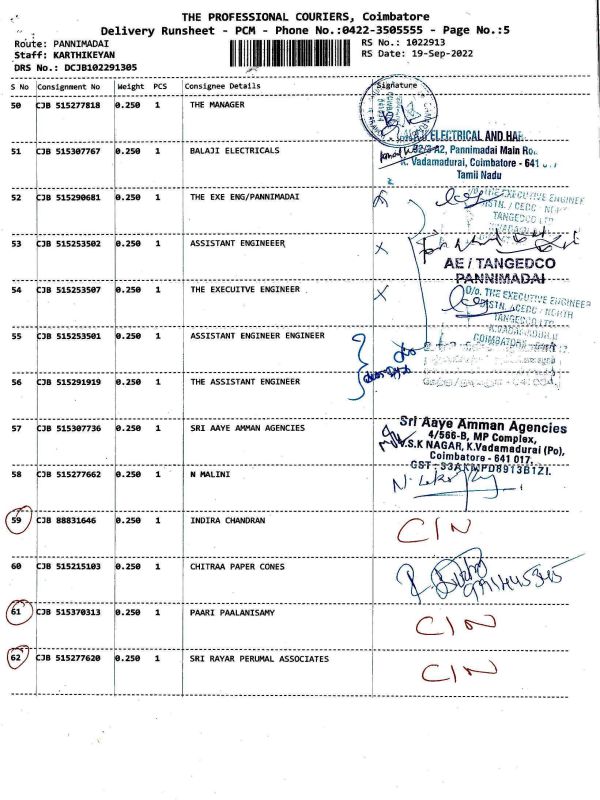 THE PROFESSIONAL COURIERS, Coimbatore
Delivery Runsheet - PCM - Phone No.:0422-3505555 - Page No.:5
Route: PANNIMADAI
RS No.: 1022913
Staff: KARTHIKEYAN
RS Date: 19-Sep-2022
DRS No.: DCJB102291305
S No Consignment No Weight PCS Consignee Details Signature
50 CJB 515277818 0.250 1 THE MANAGER
ELECTRICAL AND
51 CJB 515307767 0.250 1 BALAJI ELECTRICALS
A2, Pannimadai Main
Vadamadurai, Coimbatore - 641
Tamil Nadu
52 CJB 515290681 0.250 1 THE EXE ENG/PANNIMADAI
THE EXECUTIVE ENGINEER
DISTN. / CEDC
TANGEDCO LTD
53 CJB 515253502 0.250 1 ASSISTANT ENGINEEER X
AE / TANGEDCO
PANNIMADAI
54 CJB 515253507 0.250 1 THE EXECUITVE ENGINEER X
O/o. THE EXECUTIVE ENGINEER
DISTN. /CEDC / NORTH
TANGEDCO LTD
COIMBATORE
55 CJB 515253501 0.250 1 ASSISTANT ENGINEER ENGINEER
56 CJB 515291919 0.250 1 THE ASSISTANT ENGINEER
57 CJB 515307736 0.250 1 SRI AAYE AMMAN AGENCIES
Sri Aaye Amman Agencies
4/566-B, MP Complex,
V.S.K NAGAR, K.Vadamadurai (Po),
Coimbatore - 641 017.
GST - 33AKMPD8913B1ZI.
58 CJB 515277662 0.250 1 N MALINI
59 CJB 88831646 0.250 1 INDIRA CHANDRAN CIN
60 CJB 515215103 0.250 1 CHITRAA PAPER CONES
61 CJB 515370313 0.250 1 PAARI PAALANISAMY CIN
62 CJB 515277620 0.250 1 SRI RAYAR PERUMAL ASSOCIATES CIN